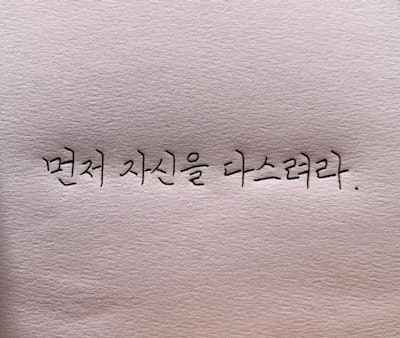 먼저 자신을 다스려라.